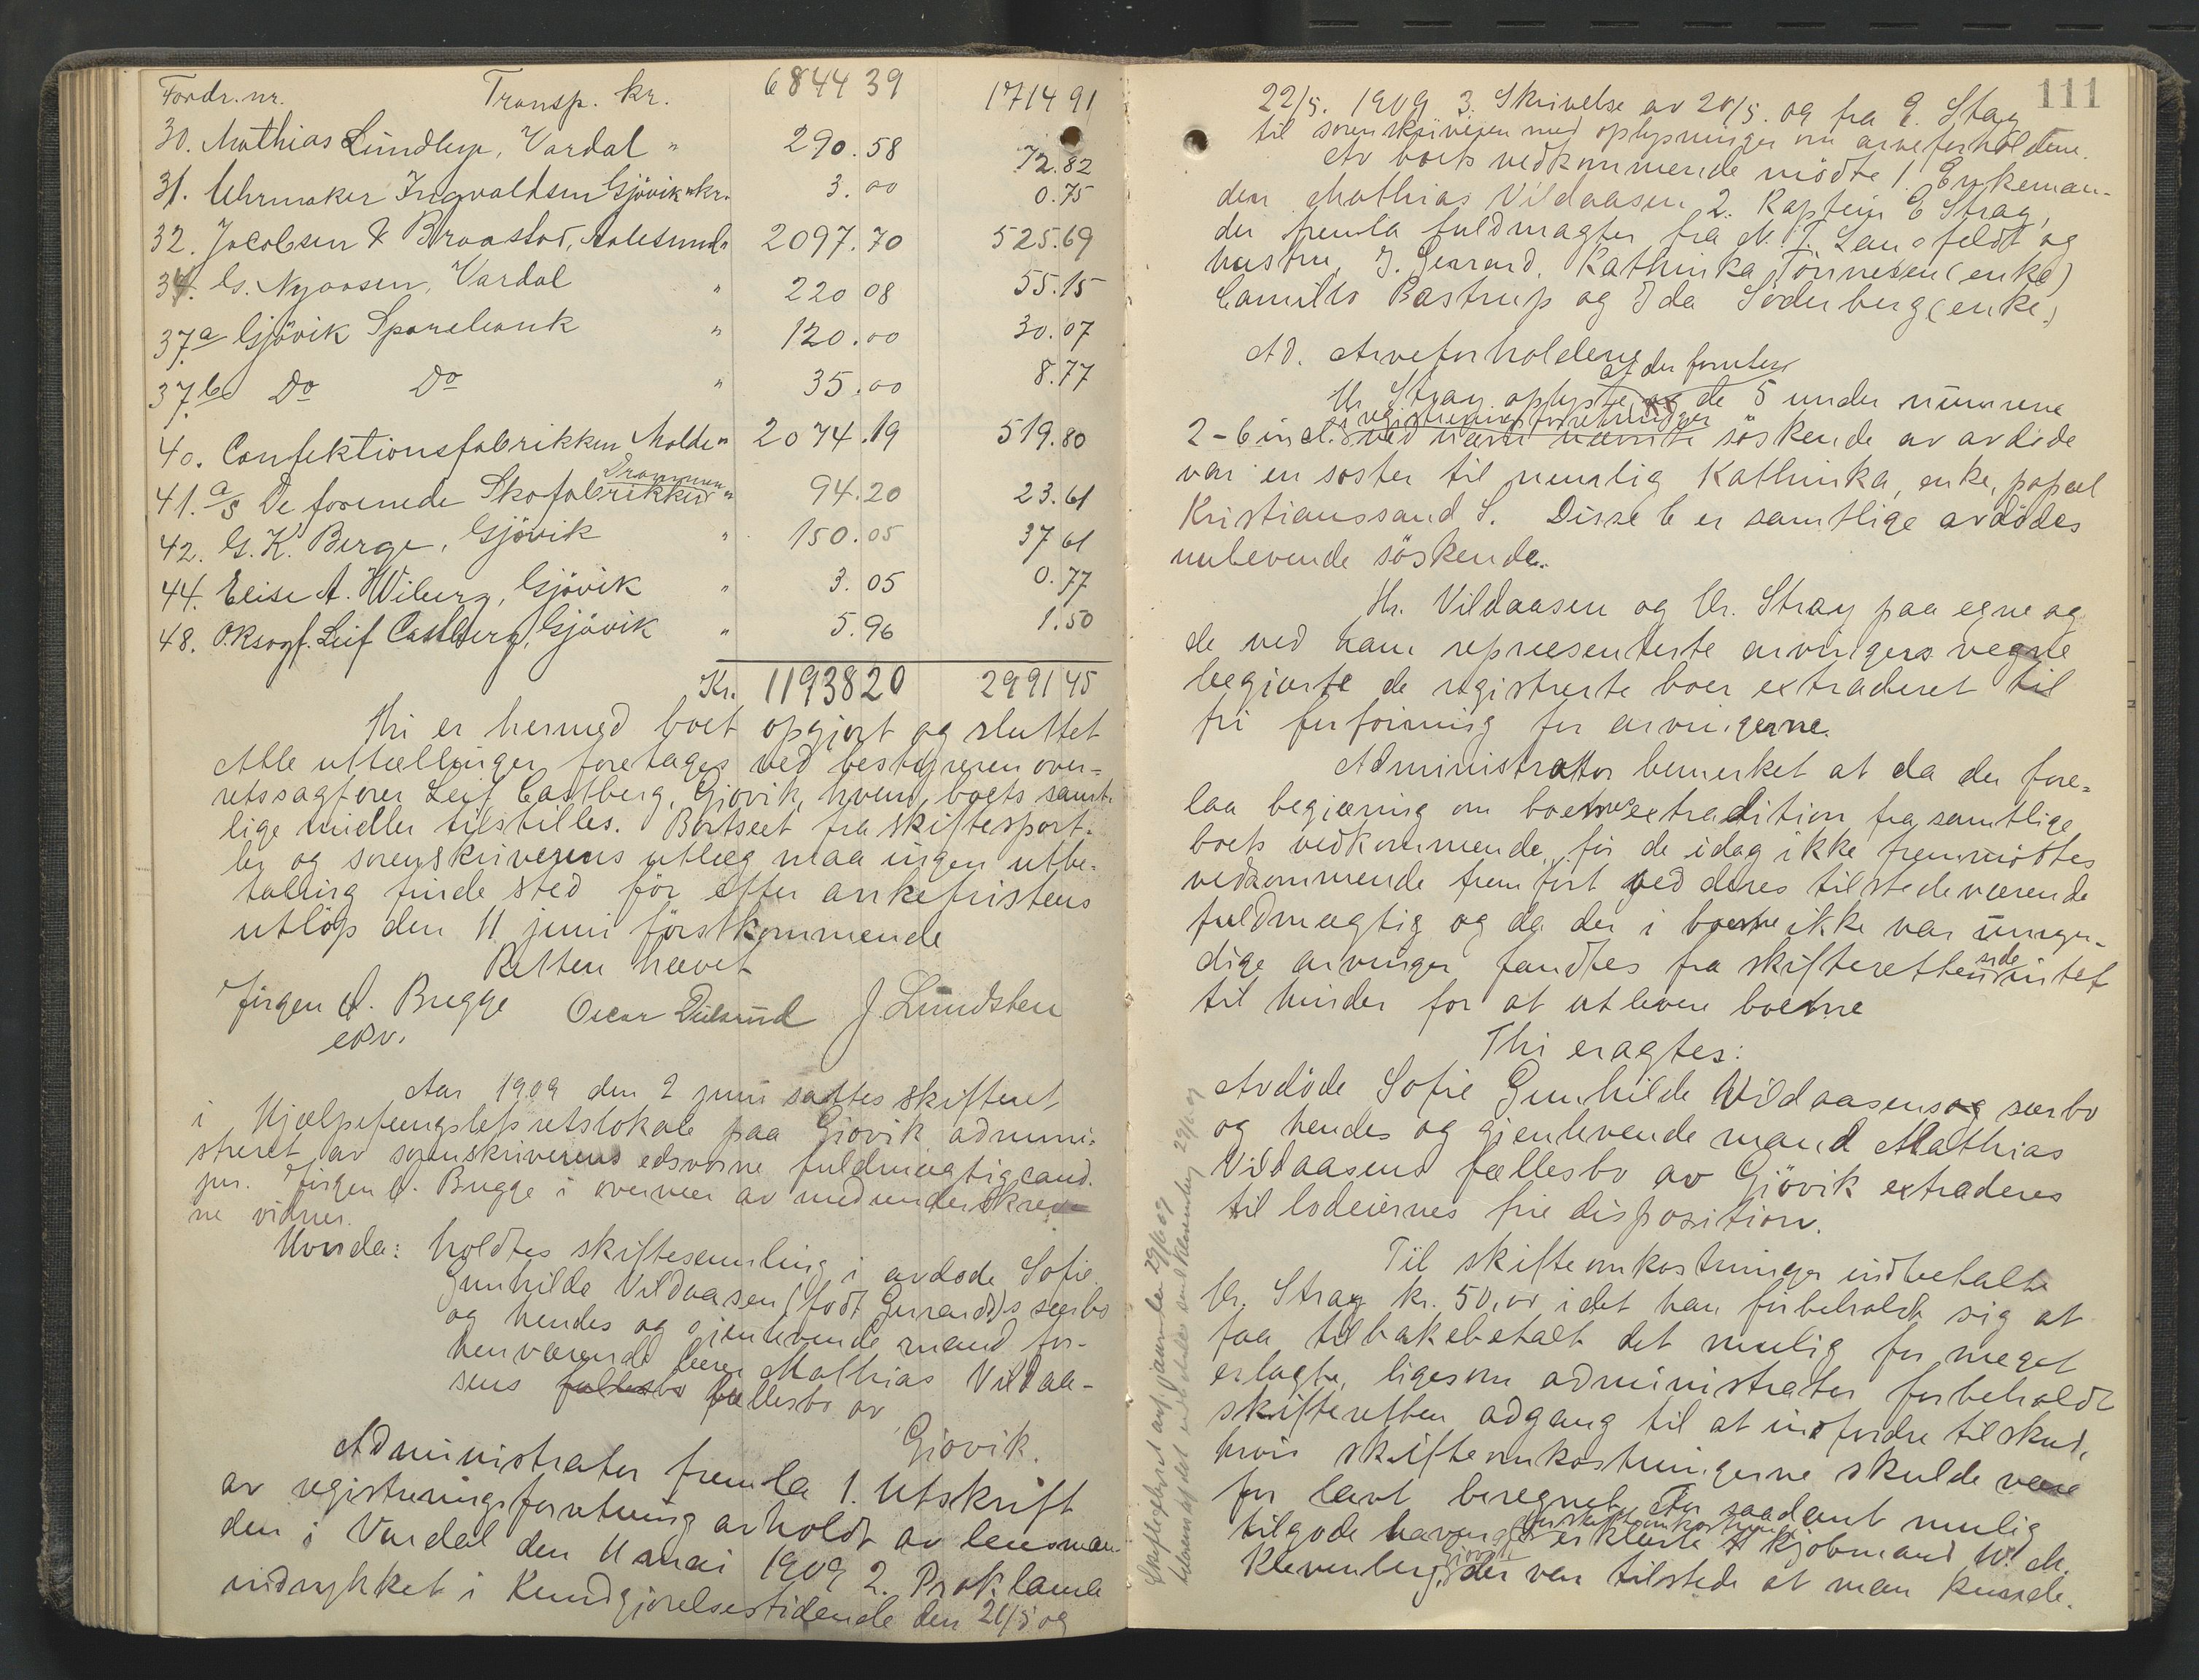 Fordr. nr. Transp. kr. 6844 39 1714 91
30. Mathias Lundby, Vardal " 290.58 72.82
31. Uhrmaker Ingvaldsen Gjövik kr. 3.00 0.75
32. Jacobsen & Braastad, Aalesund " 2097.70 525.69
34. G. Nyaasen, Vardal " 220 08 55.15
37a Gjövik Sparebank " 120.00 30.07
37b Do Do " 35.00 8.77
40. Confektionsfabrikken Molde " 2074.19 519.80
41. a/s De forenede Skofabrikker Drammen " 94.20 23.61
42. G. K. Berge, Gjövik " 150.05 37 61
44. Elise A. Wiberg, Gjövik " 3.05 0.77
48. O.rsagf. Leif Castberg, Gjövik " 5.96 1.50
Kr. 11938 20 2991 45
Thi er hermed boet opgjort og sluttet
Alle uttællinger foretages ved bestyreren over-
retssagförer Leif Castberg, Gjövik, hvem boets samt-
lige midler tilstilles. Bortseet fra skiftesport-
ler og sorenskriverens utlæg maa ingen utbe-
taling finde sted för efter ankefristens
utlöp den 11 juni förstkommende
Retten hævet
Jörgen J. Brygge Oscar J. Lundsten
edv.
Aar 1909 den 2 juni sattes skifteret
i Hjælpefængslets retslokale paa Gjövik admini-
streret av sorenskriverens edsvorne fuldmægtig cand.
jur. Jörgen J. Brygge i overvær av medunderskrev-
ne vidner.
Hvorda: holdtes skiftesamling i avdöde Sofie
Gunhilde Vildaasen (födt Gerrard)s særbo
og hendes og gjenlevende mand for-
henværende lærer Mathias Vildaa-
sens fællesbo fællesbo av
Gjövik.
Administrator fremla 1. Utskrift
av registreringsforretning avholdt av lensman-
den i Vardal den 11 mai 1909 2. Proklama
indrykket i Kundgjörelsestidende den 21/5 og
111
22/5. 1909 3. Skrivelse av 28/5. 09 fra E. Stray
til sorenskriveren med oplysninger om arveforholdene.
Av boets vedkommende mödte 1. Enkeman-
den Mathias Vildaasen 2. Kaptein E Stray,
der fremla fuldmagter fra N. T. Langfeldt og
hustru, J. Gerrard, Kathinka Tönnesen (enke)
Camilla Bastrup og Ida Söderberg (enke)
Ad. Arveforholdene
Hr. Stray oplyste at der foruten de 5 under numrene
2-6 incl. i registreringsforretningen ved navn nævnte söskende av avdöde
var en söster til nemlig Kathinka, enke, popæl
Kristianssand S. Disse 6 er samtlige avdödes
nulevende söskende.
Hr. Vildaasen og Hr. Stray paa egne og
de ved ham repræsenterte arvingers vegne
begjærte de registrerte boer extraderet til
fri forföining for arvingerne.
Administrator bemerket at da der fore-
laa begjæring om boernes extradition fra samtlige
boets vedkommende, for de idag ikke fremmöttes
vedkommende fremfört ved deres tilstedeværende
fuldmægtig og da der i boerne ikke var umyn-
dige arvinger fandtes fra skifterettens side intet
til hinder for at utlevere boerne
Thi eragtes:
Avdöde Sofie Gunhilde Vildaasens særbo
og hendes og gjenlevende mand Mathias
Vildaasens fællesbo av Gjövik extraderes
til lodeiernes frie disposition.
Til skifteomkostninger indbetalte
Hr. Stray kr. 50.00 idet han forbeholdt sig at
faa tilbakebetalt det mulig for meget
erlagte, ligesom administrator forbeholdt
skifteretten adgang til at indfordre tilskud,
hvis skifteomkostningerne skulde være
for lavt beregnet. For saadant mulig
tilgodehavende for skifteomkostninger erklærte kjöbmand W. M.
Klevenberg, Gjövik der var tilstede at man kunde.